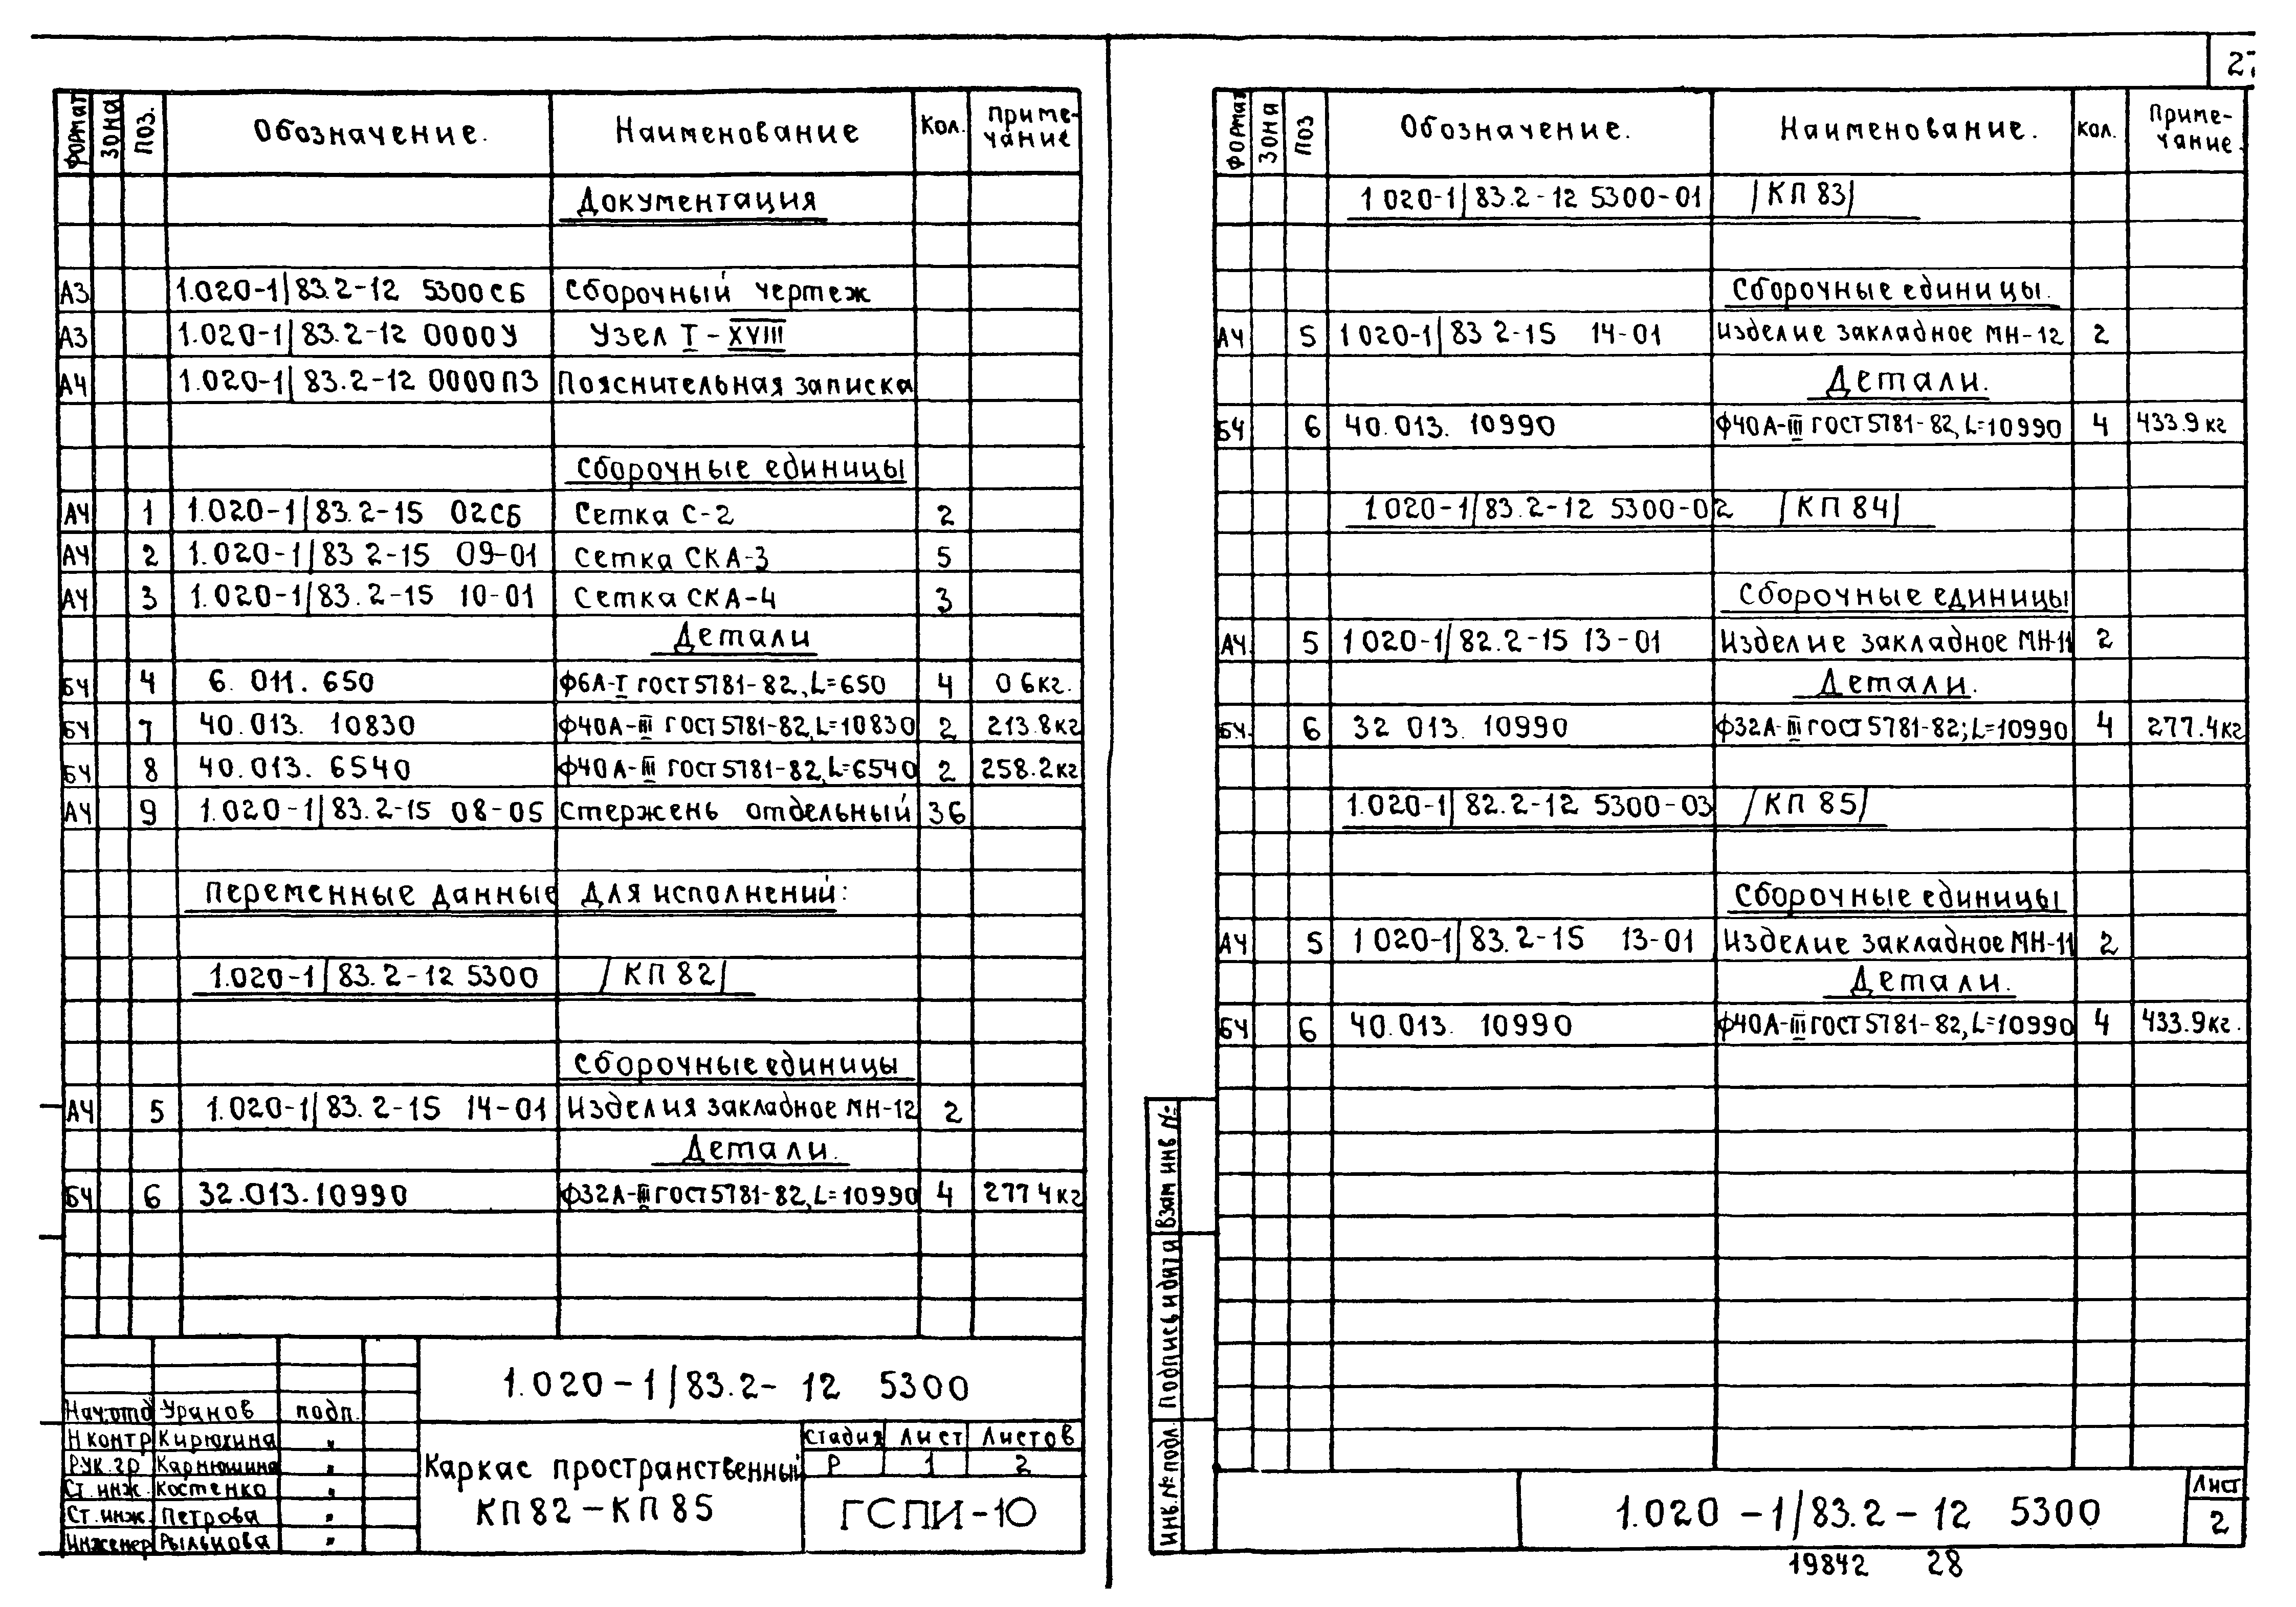 Формат Зона Поз. Обозначение. Наименование Кол. Приме-
чание
Документация
А3 1.020-1/83.2-12 5300СБ Сборочный чертеж
А3 1.020-1/83.2-12 0000У Узел I-XVIII
А4 1.020-1/83.2-12 0000ПЗ Пояснительная записка
Сборочные единицы
А4 1 1.020-1/83.2-15 02СБ Сетка С-2 2
А4 2 1.020-1/83 2-15 09-01 Сетка СКА-3 5
А4 3 1.020-1/83.2-15 10-01 Сетка СКА-4 3
Детали
БЧ 4 6. 011. 650 ф6А-I ГОСТ5781-82, L=650 4 0 6кг.
БЧ 7 40.013. 10830 ф40А-III ГОСТ5781-82, L=10830 2 213.8кг
БЧ 8 40.013. 6540 ф40А-III ГОСТ5781-82, L=6540 2 258.2кг
А4 9 1.020-1/83.2-15 08-05 Стержень отдельный 36
Переменные данные для исполнений:
1.020-1/83.2-12 5300 /КП 82/
Сборочные единицы
А4 5 1.020-1/83.2-15 14-01 Изделия закладное МН-12 2
Детали.
БЧ 6 32.013.10990 ф32А-III ГОСТ5781-82, L=10990 4 277 4кг
1.020-1/83.2- 12 5300
Нач.отд Уранов подп.
Н контр Кирюхина "
Рук.гр Карнюшина "
Ст.инж. Костенко "
Ст.инж. Петрова "
Инженер Рыльцова "
Каркас пространственный
КП 82-КП 85
Стадия Лист Листов
Р 1 2
ГСПИ-10
27
Формат Зона Поз Обозначение. Наименование. Кол. Приме-
чание.
1 020-1/83.2-12 5300-01 /КП 83/
Сборочные единицы.
А4 5 1 020-1/83 2-15 14-01 Изделие закладное МН-12 2
Детали.
БЧ 6 40.013. 10990 ф40А-III ГОСТ5781-82, L=10990 4 433.9 кг
1.020-1/83.2-12 5300-02 /КП 84/
Сборочные единицы
А4. 5 1 020-1/82.2-15 13-01 Изделие закладное МН-11 2
Детали.
БЧ. 6 32 013. 10990 ф32А-III ГОСТ5781-82; L=10990 4 277.4кг
1.020-1/82.2-12 5300-03 /КП 85/
Сборочные единицы
А4 5 1 020-1/83.2-15 13-01 Изделие закладное МН-11 2
Детали.
БЧ 6 40.013. 10990 ф40А-III ГОСТ5781-82, L=10990 4 433.9кг.
Взам инв №
Подпись и дата
Инв.№ подл.
1.020 -1/83.2- 12 5300
Лист
2
19842 28